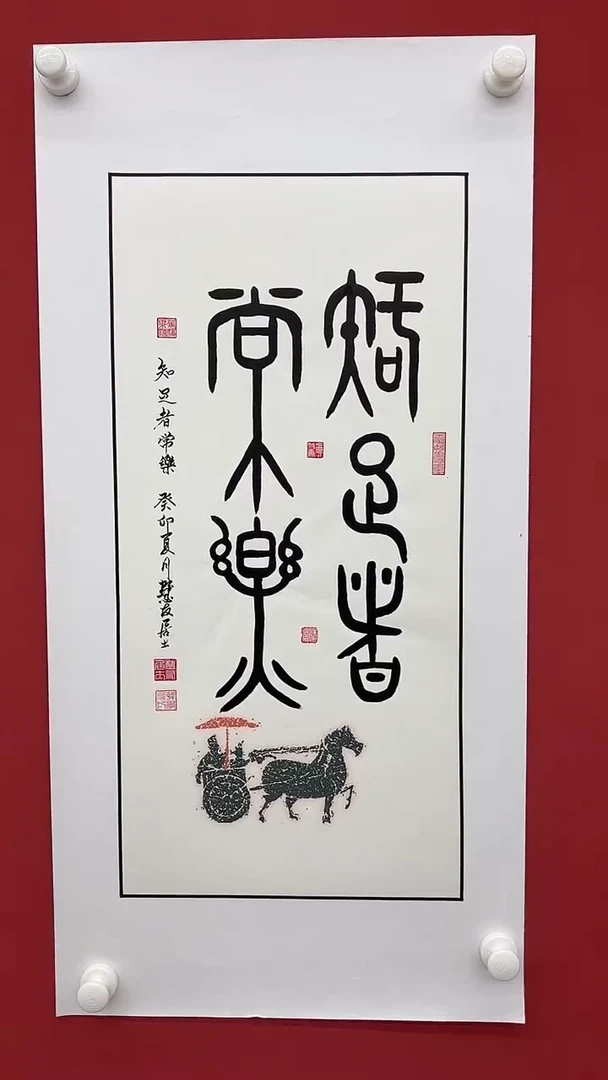 知足者
常樂
知足者常樂 癸卯夏月慧友居士